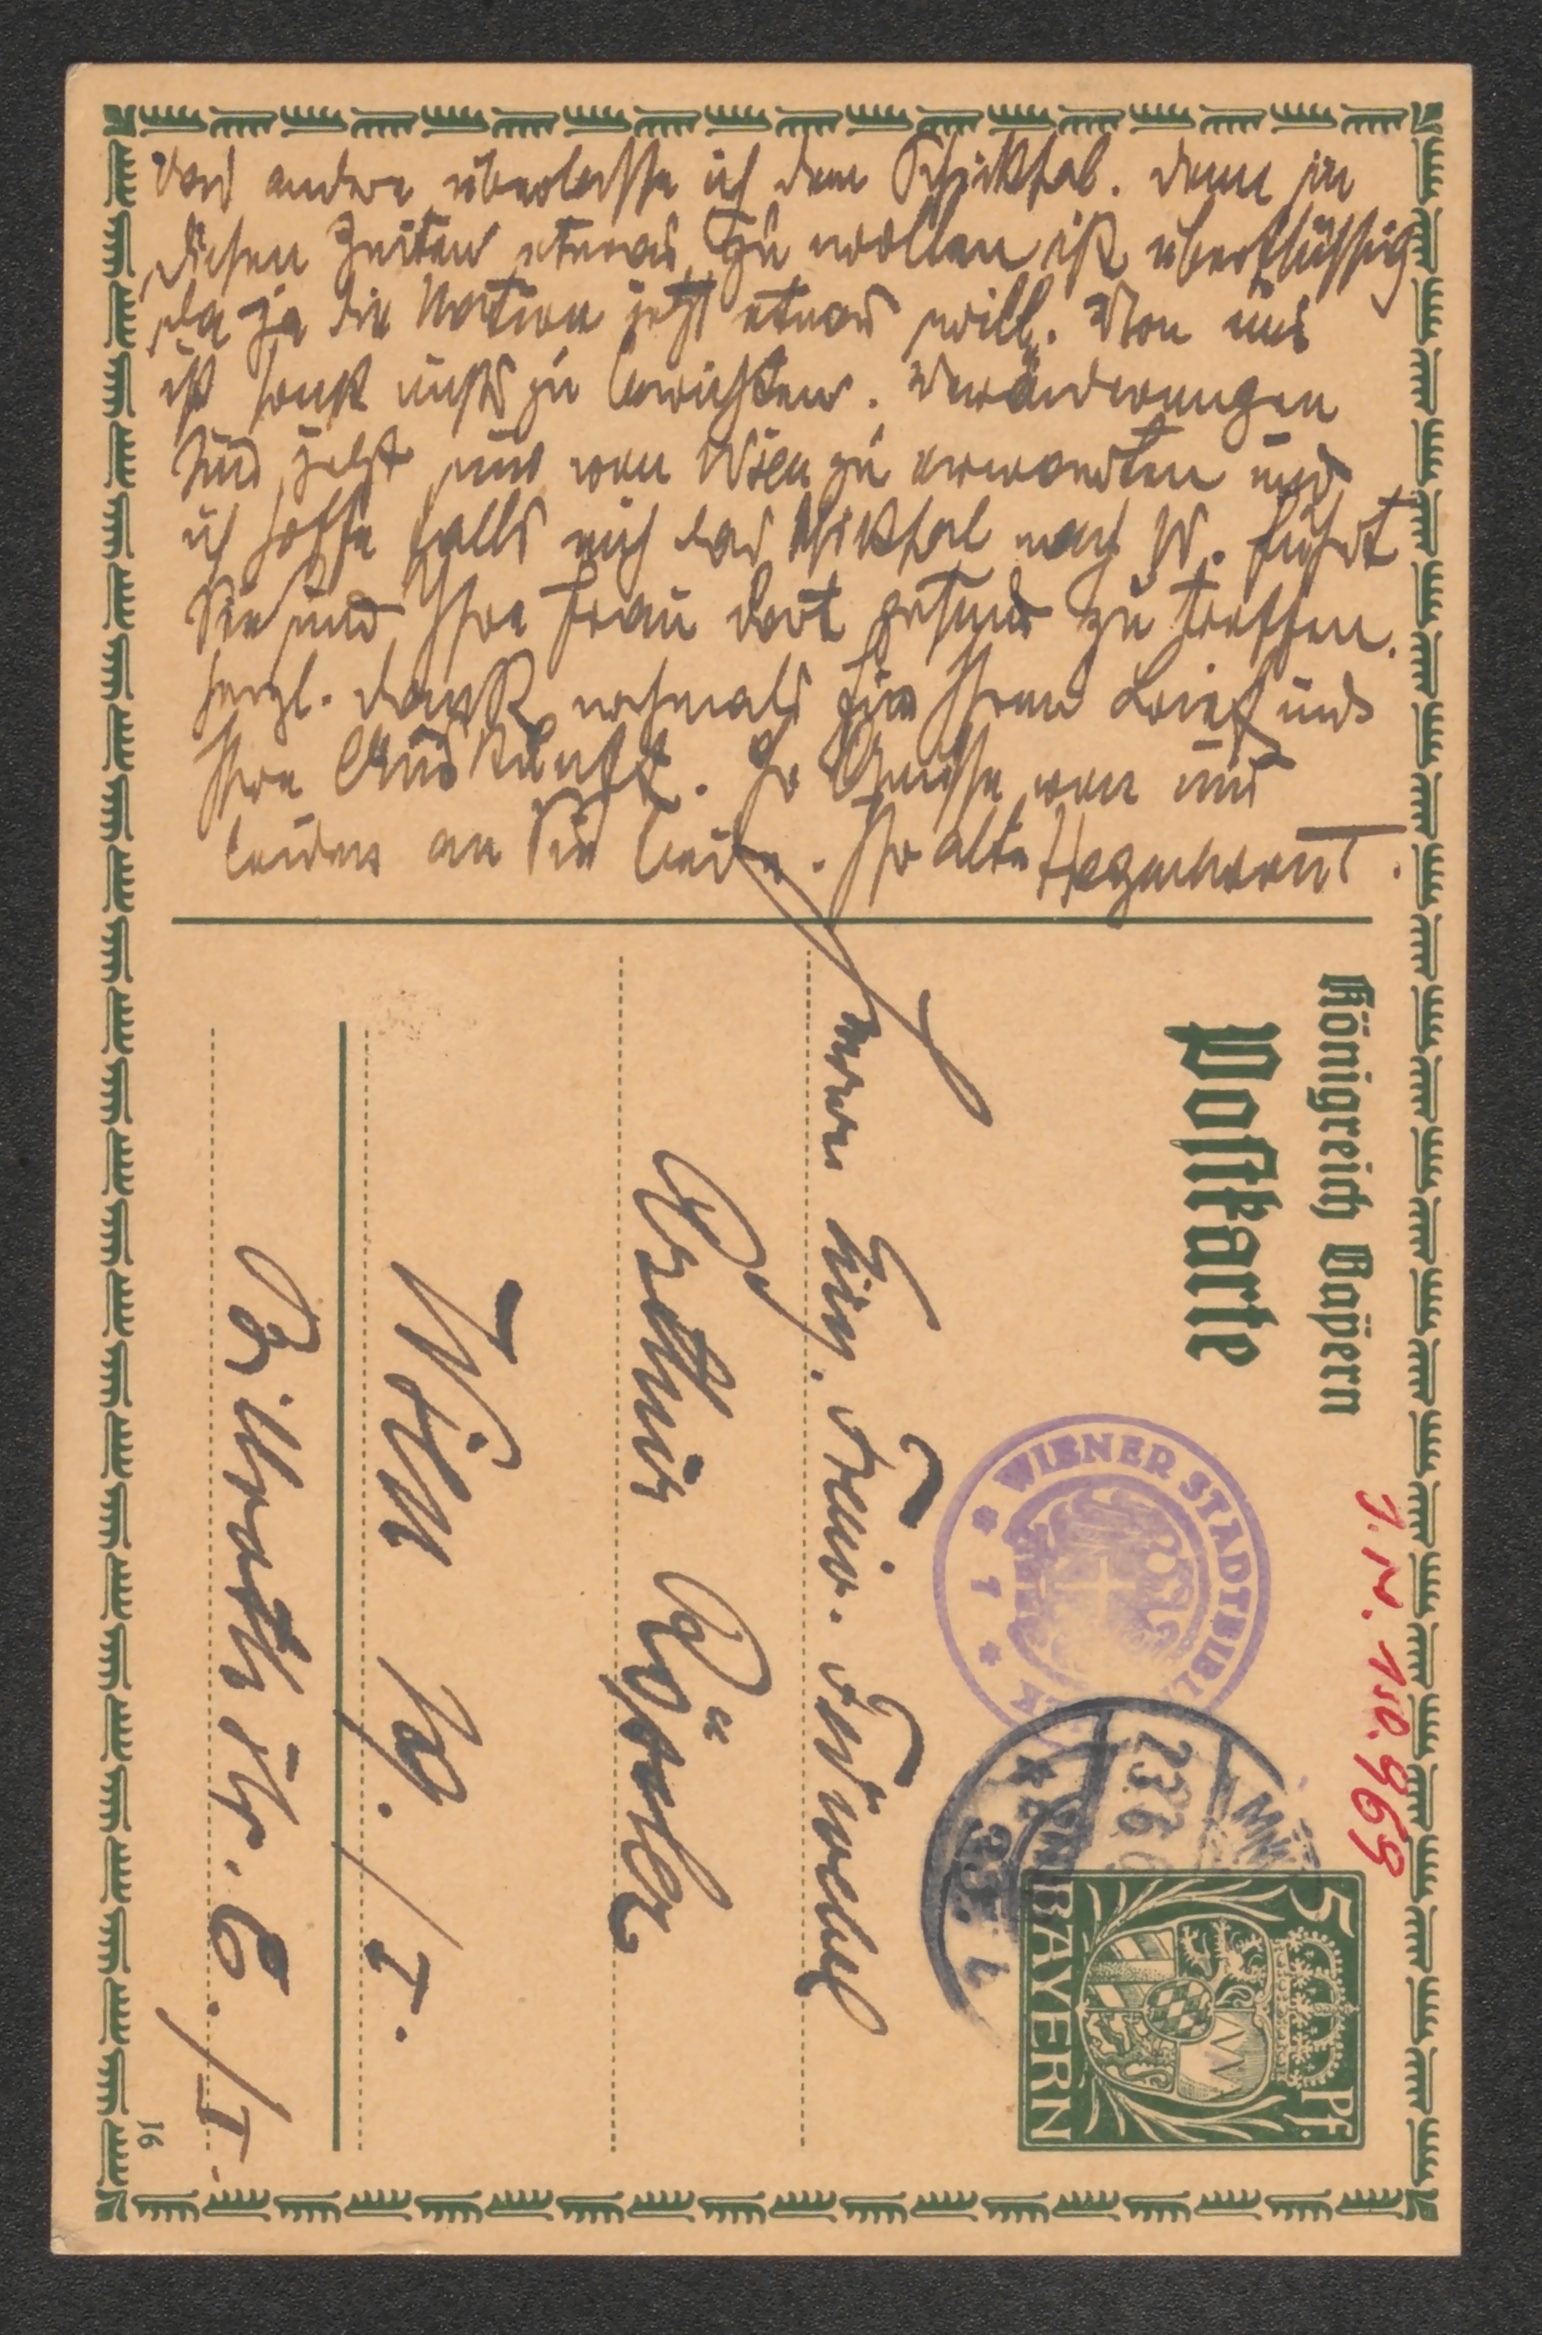 das andere überlasse ich dem Schicksal. denn in
diesen Zeiten etwas zu wollen ist überflüssig
da ja die Nation jetzt etwas will. Von uns
ist sonst nichts zu berichten. Veränderungen
sind jetzt nur von Wien zu erwarten und
ich hoffe falls mich das Schicksal nach W. führt
Sie und Ihre Frau dort gesund zu treffen.
herzl. Dank nochmals für Ihren Brief und
Ihre Auskunft. Hr Grüsse von uns
beiden an Sie beide. Ihr alter
Königreich Bayern
Postkarte
Herrn Einj. Freiw. Feldwebel
Arthur Rössler
Wien 19. / I.
Billrothstr. 6. / I.
WIENER STADTBIBL
* 1 *
J. N. 150.969
5 Pf.
BAYERN
16